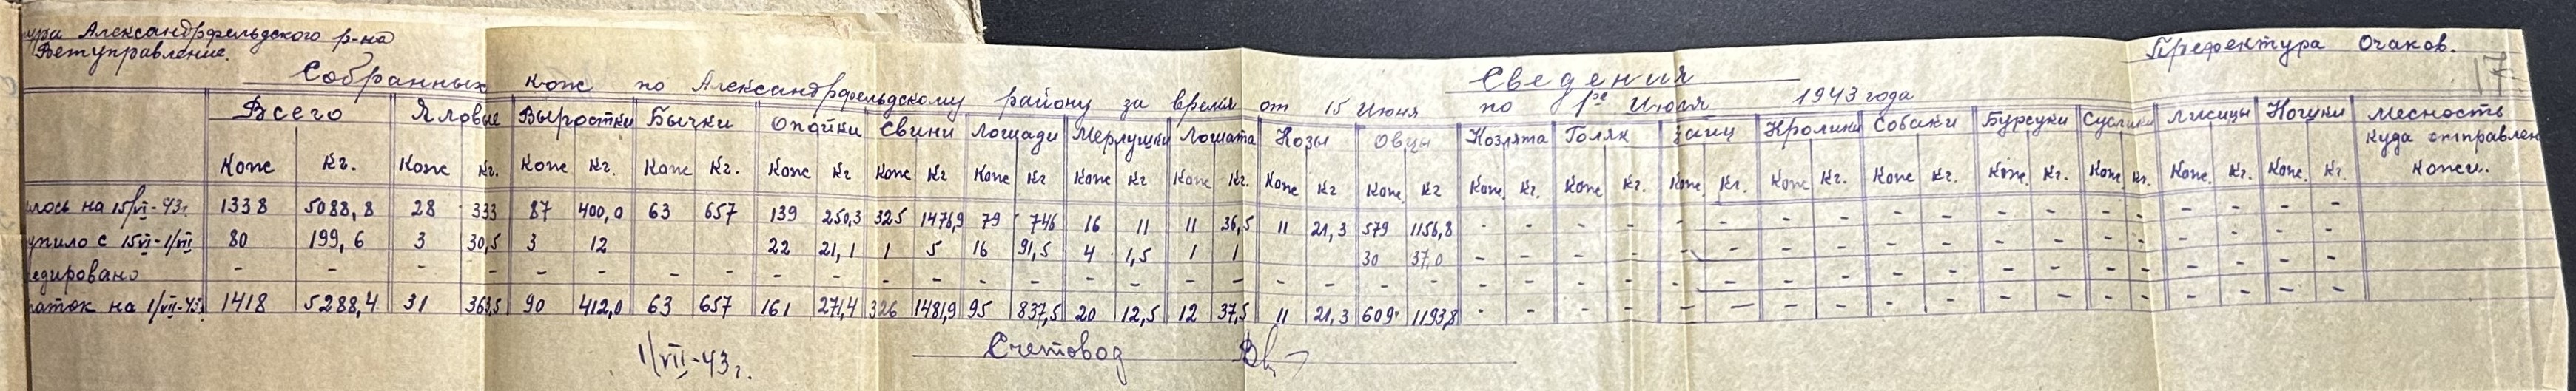 Александрфельдского р-на
Ветуправление.
Префектура Очаков.
17
Сведения
Собранных кож по Александрфельдскому району за время от 15 Июня по 1ое Июля 1943 года
Всего Яловые Выростки Бычки Опойки Свини Лошади Мерлушки Лошата Козы Овцы Козлята Голяк Зайц Кролики Собаки Бурсуки Суслики Лисицы Ношки Месность куда отправлен кожи..
Кож Кг. Кож Кг. Кож Кг. Кож Кг. Кож Кг Кож Кг Кож Кг Кож Кг Кож Кг. Кож Кг Кож Кг Кож. Кг. Кож Кг. Кож. Кг. Кож Кг. Кож Кг. Кож. Кг. Кож. Кг. Кож. Кг. Кож. Кг.
лось на 15/VI-43г. 1338 5088,8 28 333 87 400,0 63 657 139 250,3 325 1476,9 79 746 16 11 11 36,5 11 21,3 579 1156,8 - - - - - - - - - - - - - - - - - -
упило с 15VI-1/VII 80 199,6 3 30,5 3 12 22 21,1 1 5 16 91,5 4 1,5 1 1 30 37,0 - - - - - - - - - - - - - - - - - -
едировано - - - - - - - - - - - - - - - - - - - - - - - - - - - - - - - - - - - - - - - -
таток на 1/VII-43г 1418 5288,4 31 363,5 90 412,0 63 657 161 271,4 326 1481,9 95 837,5 20 12,5 12 37,5 11 21,3 609 1193,8 - - - - - - - - - - - - - - - - - -
1/VII-43г. Счетовод